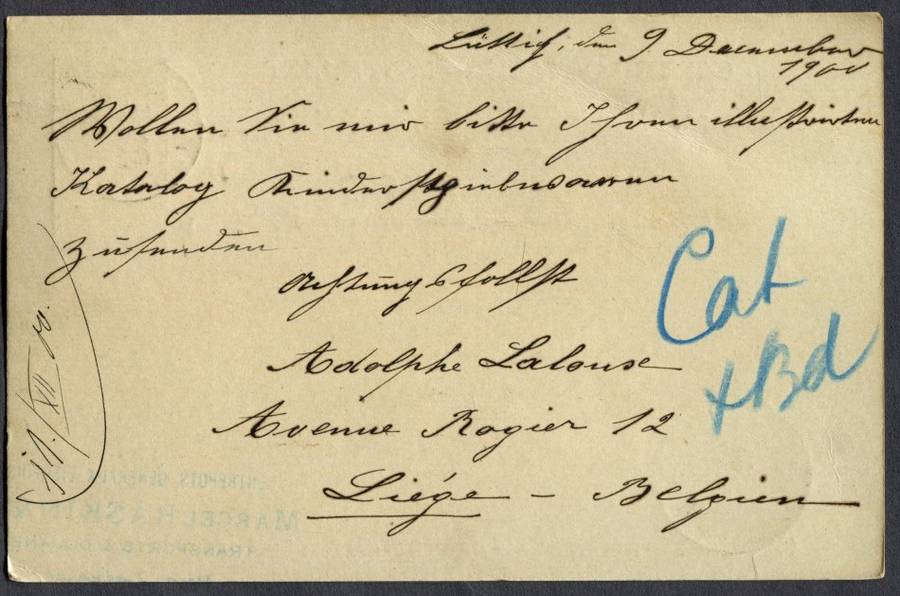 Lüttich, den 9 Dezember
1900
Wollen Sie mir bitte Ihren illustrirten
Katalog Kinderspielwaaren
zusenden
Achtungsvollst
Adolphe Lalouse
Avenue Rogier 12
Liége - Belgien
Cat
+Bd
11./XII 00.
MARCEL RASKIN
TRANSPORTS & DOUANE